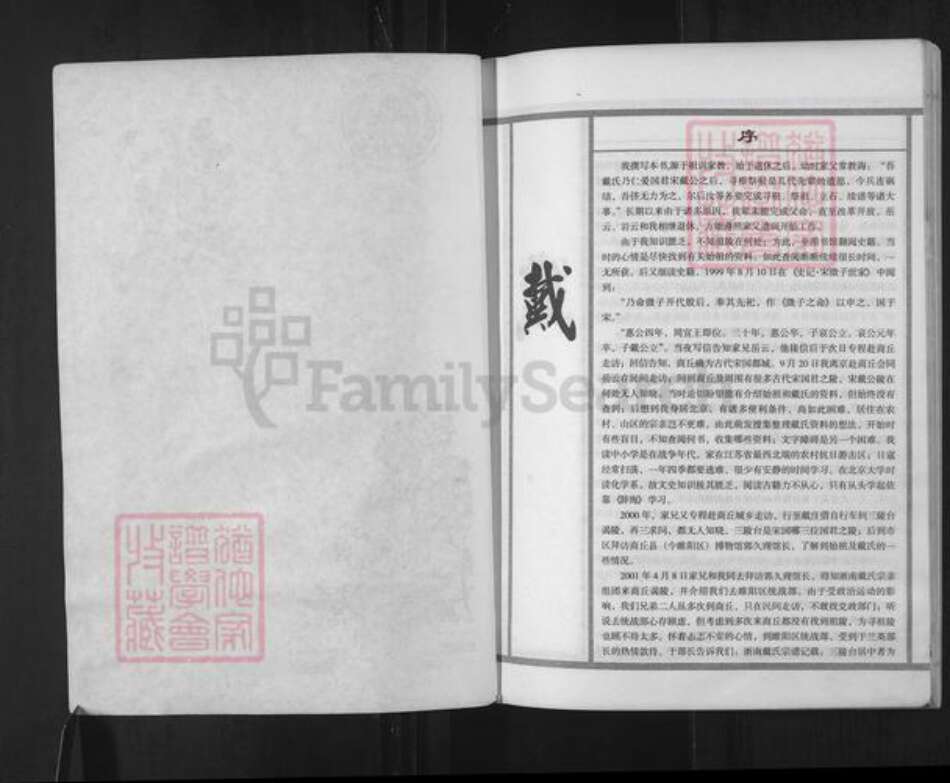 FamilySearch
戴
序
我撰写本书,源于祖训家教,始于退休之后。幼时家父常教诲:“吾
戴氏乃仁爱国君宋戴公之后,寻根祭祖是几代先辈的遗愿,今兵连祸
结,吾侪无力为之,尔后汝等务要完成寻祖、祭祖、立石、续谱等诸大
事。”长期以来由于诸多原因,我辈未能完成父命,直至改革开放,岳
云、岩云和我相继退休,方能遵照家父遗训开始工作。
由于我知识匮乏,不知祖陵在何处;为此,坐图书馆翻阅史籍。当
时的心情是尽快找到有关始祖的资料,如此查阅断断续续很长时间,一
无所获。后又细读史籍,1999年8月10日在《史记·宋微子世家》中阅
到:
“乃命微子开代殷后,奉其先祀,作《微子之命》以申之,国于
宋。”
“惠公四年,周宣王即位。三十年,惠公卒,子哀公立。哀公元年
卒,子戴公立”。当夜写信告知家兄岳云,他接信后于次日专程赴商丘
走访;回信告知,商丘确为古代宋国都城。9月20日我离京赴商丘会同
岳云在民间走访;问到商丘及周围有很多古代宋国君之陵,宋戴公陵在
何处无人知晓。当时迫切盼望能有介绍始祖和戴氏的资料,但始终没有
查到;后想到我身居北京,有诸多便利条件,尚如此困难,居住在农
村、山区的宗亲岂不更难,由此萌发搜集整理戴氏资料的想法。开始时
有些盲目,不知查阅何书,收集哪些资料;文字障碍是另一个困难。我
读中小学是在战争年代,家在江苏省最西北端的农村抗日游击区;日寇
经常扫荡,一年四季都要逃难,很少有安静的时间学习。在北京大学时
读化学系,故文史知识极其匮乏,阅读古籍力不从心,只有从头学起依
靠《辞海》学习。
2000年,家兄又专程赴商丘城乡走访,行至戴庄借自行车到三陵台
谒陵,再三求问,都无人知晓,三陵台是宋国哪三位国君之陵;后到市
区拜访商丘县(今睢阳区)博物馆郭久理馆长,了解到始祖及戴氏的一
些情况。
2001年4月8日家兄和我同去拜访郭久理馆长,得知浙南戴氏宗亲
组团来商丘谒陵,并介绍我们去睢阳区统战部。由于受政治运动的影
响,我们兄弟二人虽多次到商丘,只在民间走访,不敢找党政部门;听
说去统战部心存顾虑,但考虑到多次来商丘都没有找到祖陵,为寻祖陵
也顾不得太多。怀着忐忑不安的心情,到睢阳区统战部,受到于兰英部
长的热情款待。于部长告诉我们:浙南戴氏宗谱记载,三陵台居中者为